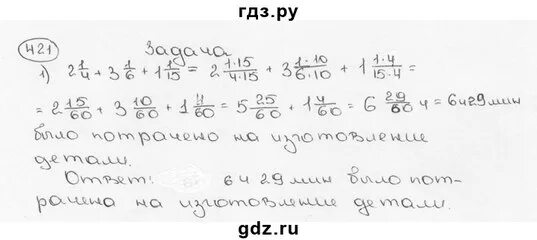 гдз.ру
421 Задача
1) 2 1/4 + 3 1/6 + 1 1/15 = 2 1·15/4·15 + 3 1·10/6·10 + 1 1·4/15·4 =
= 2 15/60 + 3 10/60 + 1 4/60 = 5 25/60 + 1 4/60 = 6 29/60 ч = 6ч29мин
было потрачено на изготовление
детали.
Ответ: 6 ч 29 мин было пот-
рачена на изготовление детали.
gdz.ru